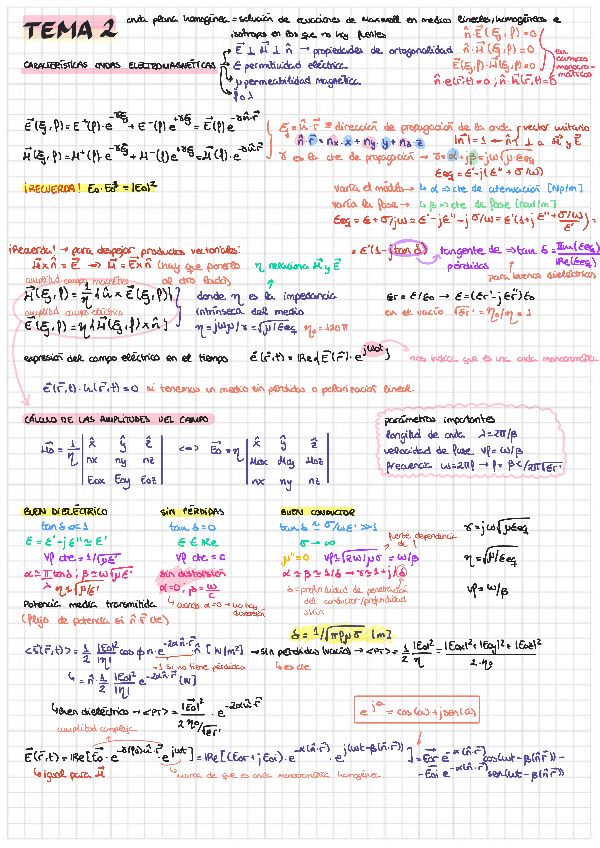 TEMA 2
onda plana homogénea = solución de ecuaciones de Maxwell en medios lineales, homogéneos e
isotropos en los que no hay fuentes
CARACTERÍSTICAS ONDAS ELECTROMAGNÉTICAS
E ⊥ H ⊥ n̂ → propiedades de ortogonalidad
ε permitividad eléctrica
μ permeabilidad magnética
f o λ
n̂·E(ξ, f) = 0
n̂·H(ξ, f) = 0
E(ξ, f)·H(ξ, f) = 0
n̂·e(r,t) = 0 ; n̂·h(r,t) = 0
E(ξ, f) = E⁺(f)·e^-γξ + E⁻(f)·e^+γξ = E(f)·e^-γn̂·r
H(ξ, f) = H⁺(f)·e^-γξ + H⁻(f)·e^+γξ = H(f)·e^-γn̂·r
ξ = n̂·r ≡ dirección de propagación de la onda
vector unitario
n̂·r = nx·x + ny·y + nz·z
|n̂| = 1 n̂ ⊥ a H y E
γ es la cte de propagación → γ = α + jβ = jω√(μ·εeq)
εeq = ε' - j(ε'' + σ/ω)
¡RECUERDA! E0·E0* = |E0|²
varía el módulo → α ⇒ cte de atenuación [Np/m]
varía la fase → β ⇒ cte de fase [rad/m]
εeq = ε + σ/jω = ε' - jε'' - jσ/ω = ε'(1 + j (ε'' + σ/ω)/ε') =
= ε'(1 - j tan δ)
tangente de pérdidas
⇒ tan δ = |Im(εeq)| / Re(εeq)
para buenos dieléctricos
¡Recuerda! → para despejar productos vectoriales:
H × n̂ = E ⇒ H = E × n̂ (hay que ponerlo al otro lado)
η relaciona H y E
amplitud campo magnético
H(ξ, f) = 1/η {n̂ × E(ξ, f)}
amplitud campo eléctrico
E(ξ, f) = η {H(ξ, f) × n̂}
donde η es la impedancia
intrínseca del medio
η = jωμ/γ = √μ/εeq η0 = 120π
εr = ε/ε0 → ε = (εr' - jεr'')ε0
en el vacío √εr' = η0/η = 1
expresión del campo eléctrico en el tiempo e(r,t) = Re{E(r)·e^jωt}
nos indica que es una onda monocromática
e(r,t)·h(r,t) = 0 si tenemos un medio sin pérdidas o polarización lineal
CÁLCULO DE LAS AMPLITUDES DEL CAMPO
H0 = 1/η | x̂ ŷ ẑ | nx ny nz | E0x E0y E0z |
<=> E0 = η | x̂ ŷ ẑ | H0x H0y H0z | nx ny nz |
parámetros importantes
longitud de onda λ = 2π/β
velocidad de fase vf = ω/β
frecuencia ω = 2πf → f = βc/2π√εr'
BUEN DIELÉCTRICO
tan δ << 1
ε = ε' - jε'' ≃ ε'
vf cte = 1/√με'
β ≃ ω√με'
η ≃ √μ/ε'
SIN PÉRDIDAS
tan δ = 0
ε ∈ Re
vf cte = c
sin distorsión
α = 0, β = ω/c
cuando α = 0 → no hay distorsión
BUEN CONDUCTOR
tan δ ≃ σ/ωε' >> 1
σ → ∞
μ'' = 0 vf ≃ √2ω/μσ = ω/β
fuerte dependencia de f
α ≃ β ≃ 1/δ → γ ≃ 1 + j/δ
δ = profundidad de penetración
del conductor/profundidad
skin
δ = 1/√πfμσ [m]
γ = jω√μεeq
η = √μ/εeq
vf = ω/β
Potencia media transmitida
(flujo de potencia si n̂·r cte)
<P(r,t)> = 1/2 |E0|²/|η| cos φη·e^-2αn̂·r n̂ [W/m²] → sin pérdidas (vacío) → <PT> = 1/2 |E0|²/η = |E0x|² + |E0y|² + |E0z|² / 2·η0
= 1 si no tiene pérdidas
es cte
= n̂·1/2 |E0|²/|η| e^-2αn̂·r [W]
buen dieléctrico → <PT> = |E0|² / (2 η0/√εr') · e^-2αn̂·r
e^jα = cos(α) + jsen(α)
amplitud compleja
E(r,t) = Re[E0·e^-γ(f)n̂·r·e^jωt] = Re[(E0r + jE0i)·e^-α(n̂·r)·e^j(ωt-β(n̂·r))] = E0r e^-α(n̂·r) cos(ωt - β(n̂·r)) -
- E0i e^-α(n̂·r) sen(ωt - β(n̂·r))
igual para H
marca de que es onda monocromática homogénea